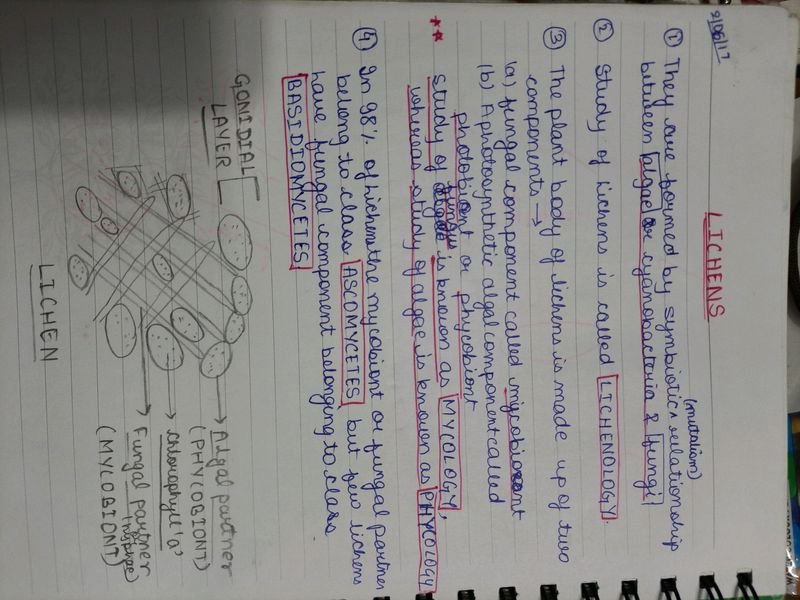 2/06/17
LICHENS
(mutalism)
① They are formed by symbiotics relationship
between algae or cyanobacteria & fungi
② Study of lichens is called LICHENOLOGY.
③ The plant body of lichens is made up of two
components →
(a) fungal component called mycobiont
(b) A photosynthetic algal component called
photobiont or phycobiont
** Study of fungi is known as MYCOLOGY,
whereas study of algae is known as PHYCOLOGY
④ In 98% of lichens the mycobiont or fungal partner
belong to class ASCOMYCETES but few lichens
have fungal component belonging to class
BASIDIOMYCETES
GONIDIAL
LAYER
Algal partner
(PHYCOBIONT)
Chlorophyll 'a'
Fungal partner
(hyphae)
(MYCOBIONT)
LICHEN